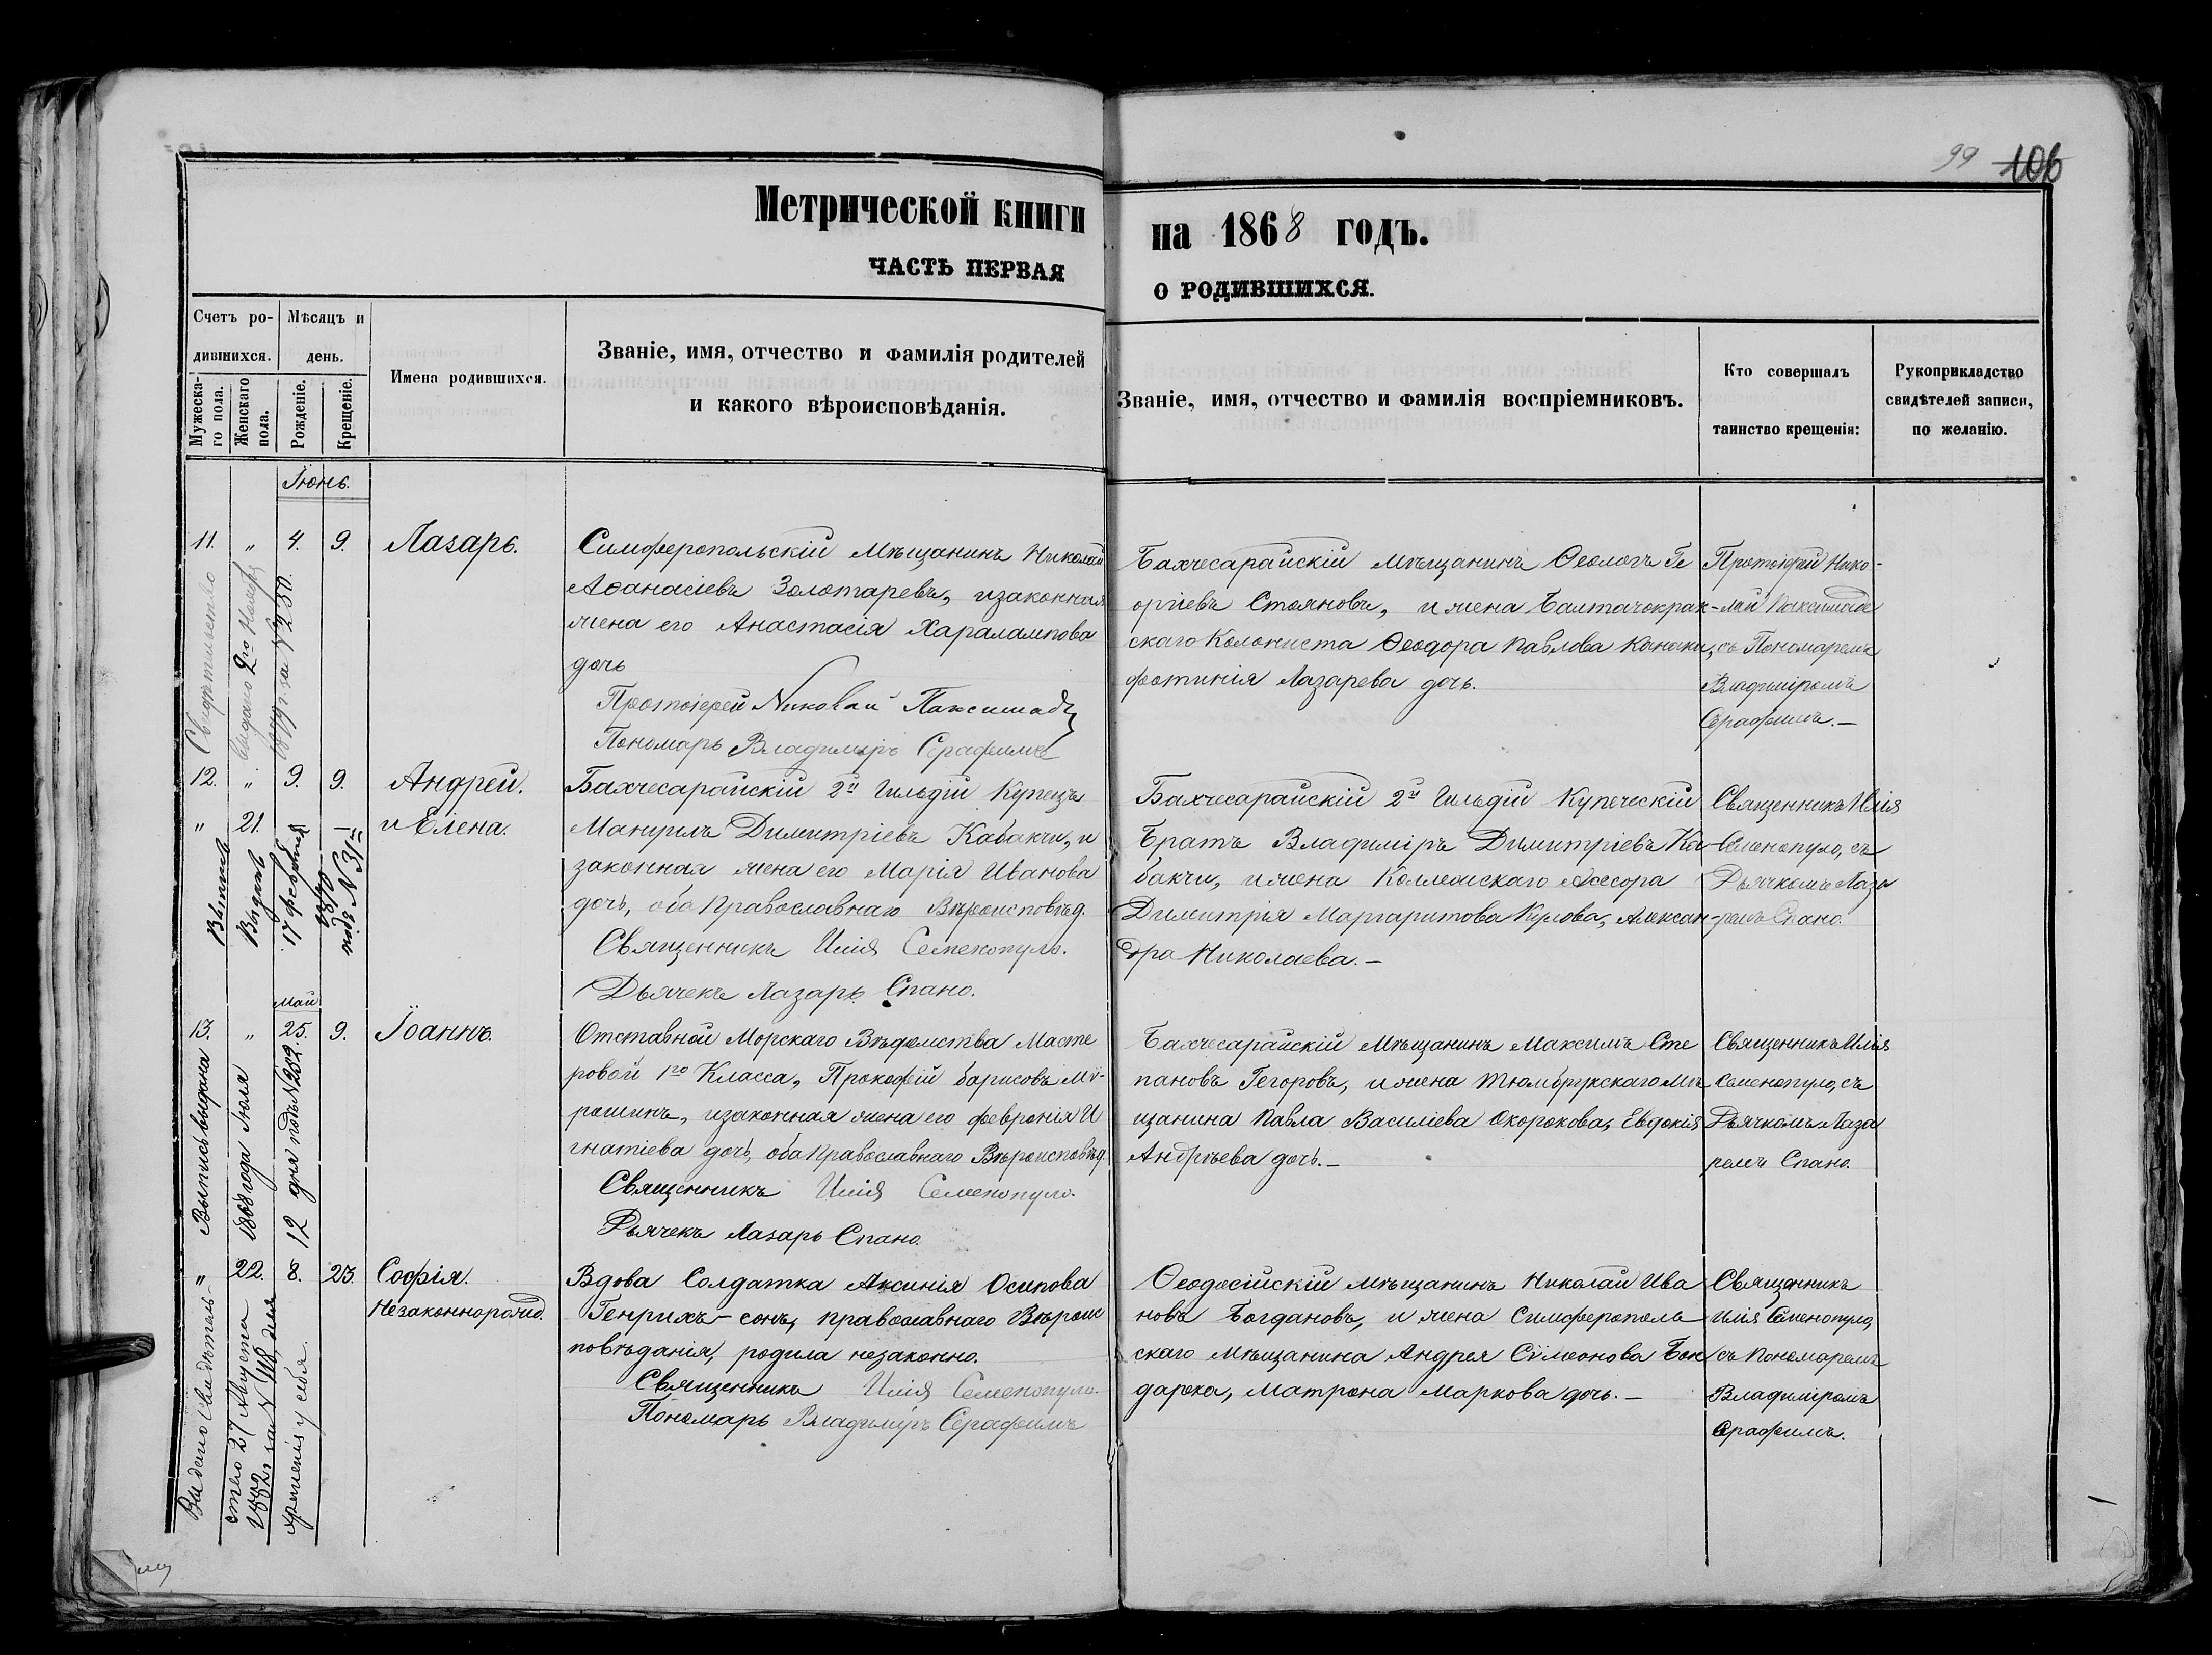 99 106
Метрической книги
на 1868 годъ.
ЧАСТЬ ПЕРВАЯ
О РОДИВШИХСЯ.
Счетъ ро-
дившихся.
Мѣсяцъ и
день.
Мужеска-
го пола.
Женскаго
пола.
Рожденіе.
Крещеніе.
Имена родившихся.
Званіе, имя, отчество и фамилія родителей
и какого вѣроисповѣданія.
Званіе, имя, отчество и фамилія воспріемниковъ.
Кто совершалъ
таинство крещенія:
Рукоприкладство
свидѣтелей записи,
по желанію.
Іюнь.
11. " 4. 9. Лазарь.
Симферопольскій Мѣщанинъ Николай
Аѳанасіевъ Золотаревъ, и законная
жена его Анастасія Харалампова
дочь
Протоіерей Николай
Пономарь Владимиръ Серафимъ
Бахчесарайскій мѣщанинъ Ѳеологъ Ге
оргіевъ Стояновъ, и жена
скаго Колониста Ѳеодора Павлова
фотинія Лазарева дочь.
Протоіерей Нико-
лай
съ Пономаремъ
Владиміромъ
Серафимъ.—
Свидѣтельство
выдано 2го Ноября
12. " 9. 9. Андрей.
" 21. и Елена.
Бахчесарайскій 2й Гильдіи Купецъ
Димитріевъ Кабакчи, и
законная жена его Марія Иванова
дочь, оба Православнаго Вѣроисповѣд.
Священникъ Илія Семенопуло.
Дьячекъ Лазарь Спано.
Бахчесарайскій 2й Гильдіи Купеческій
Братъ Владиміръ Димитріевъ Ка-
бакчи, и жена Коллежскаго Асесора
Димитрія Маргаритова Кулова, Алексан-
дра Николаева.—
Священникъ Илія
Семенопуло, съ
Дьячкомъ Лаза
ремъ Спано.
17 февраля
под N 31
Май
13. " 25. 9. Іоаннъ.
Отставной Морскаго Вѣдомства Масте
ровой 1го Класса, Прокофій Борисовъ Мѵ-
рошинъ, и законная жена его февронія И
гнатіева дочь, оба Православнаго Вѣроисповѣд.
Священникъ Илія Семенопуло.
Дьячекъ Лазарь Спано.
Бахчесарайскій Мѣщанинъ Максимъ Сте
пановъ Гегоровъ, и жена Мѣ
щанина Павла Василіева Окорокова, Евдокія
Андрѣева дочь.—
Священникъ Илія
Семенопуло, съ
Дьячкомъ Лаза
ремъ Спано.
Выпись выдана
1868 года Іюля
12 дня подъ N 252.
" 22. 8. 23. Софія.
Незаконнорожд.
Вдова Солдатка Аксинія Осипова
Генрихъ-сонъ, православнаго Вѣроис
повѣданія, родила незаконно.
Священникъ Илія Семенопуло.
Пономарь Владимиръ Серафимъ
Ѳеодосійскій мѣщанинъ Николай Ива
новъ Богдановъ, и жена Симферополь
скаго Мѣщанина Андрея Сѵмеонова Бон
дарека, Матрона Маркова дочь.—
Священникъ
Илія Семенопуло,
съ Пономаремъ
Владиміромъ
Серафимъ.
Выдено Свидѣтель-
ство 27 Августа
1882 за N 118,